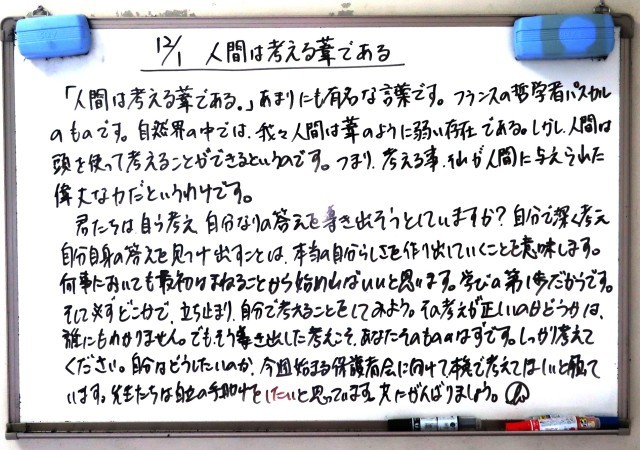 12/1 人間は考える葦である
「人間は考える葦である。」あまりにも有名な言葉です。フランスの哲学者パスカル
のものです。自然界の中では、我々人間は葦のように弱い存在である。しかし、人間は
頭を使って考えることができるというのです。つまり、考える事、それが人間に与えられた
偉大な力だというわけです。
君たちは、自ら考え、自分なりの答えを導き出そうとしていますか?自分で深く考え
自分自身の答えを見つけ出すことは、本当の自分らしさを作り出していくことを意味します。
何事においても最初はまねることから始めればいいと思います。学びの第1歩だからです。
そして必ずどこかで、立ち止まり、自分で考えることをしてみよう。その考えが正しいのかどうかは、
誰にもわかりません。でもそう導き出した考えこそ、あなたそのもののはずです。しっかり考えて
ください。自分はどうしたいのか、今週始まる保護者会に向けて本気で考えてほしいと願って
います。先生たちは自立の手助けをしたいと思っています。共にがんばりましょう。